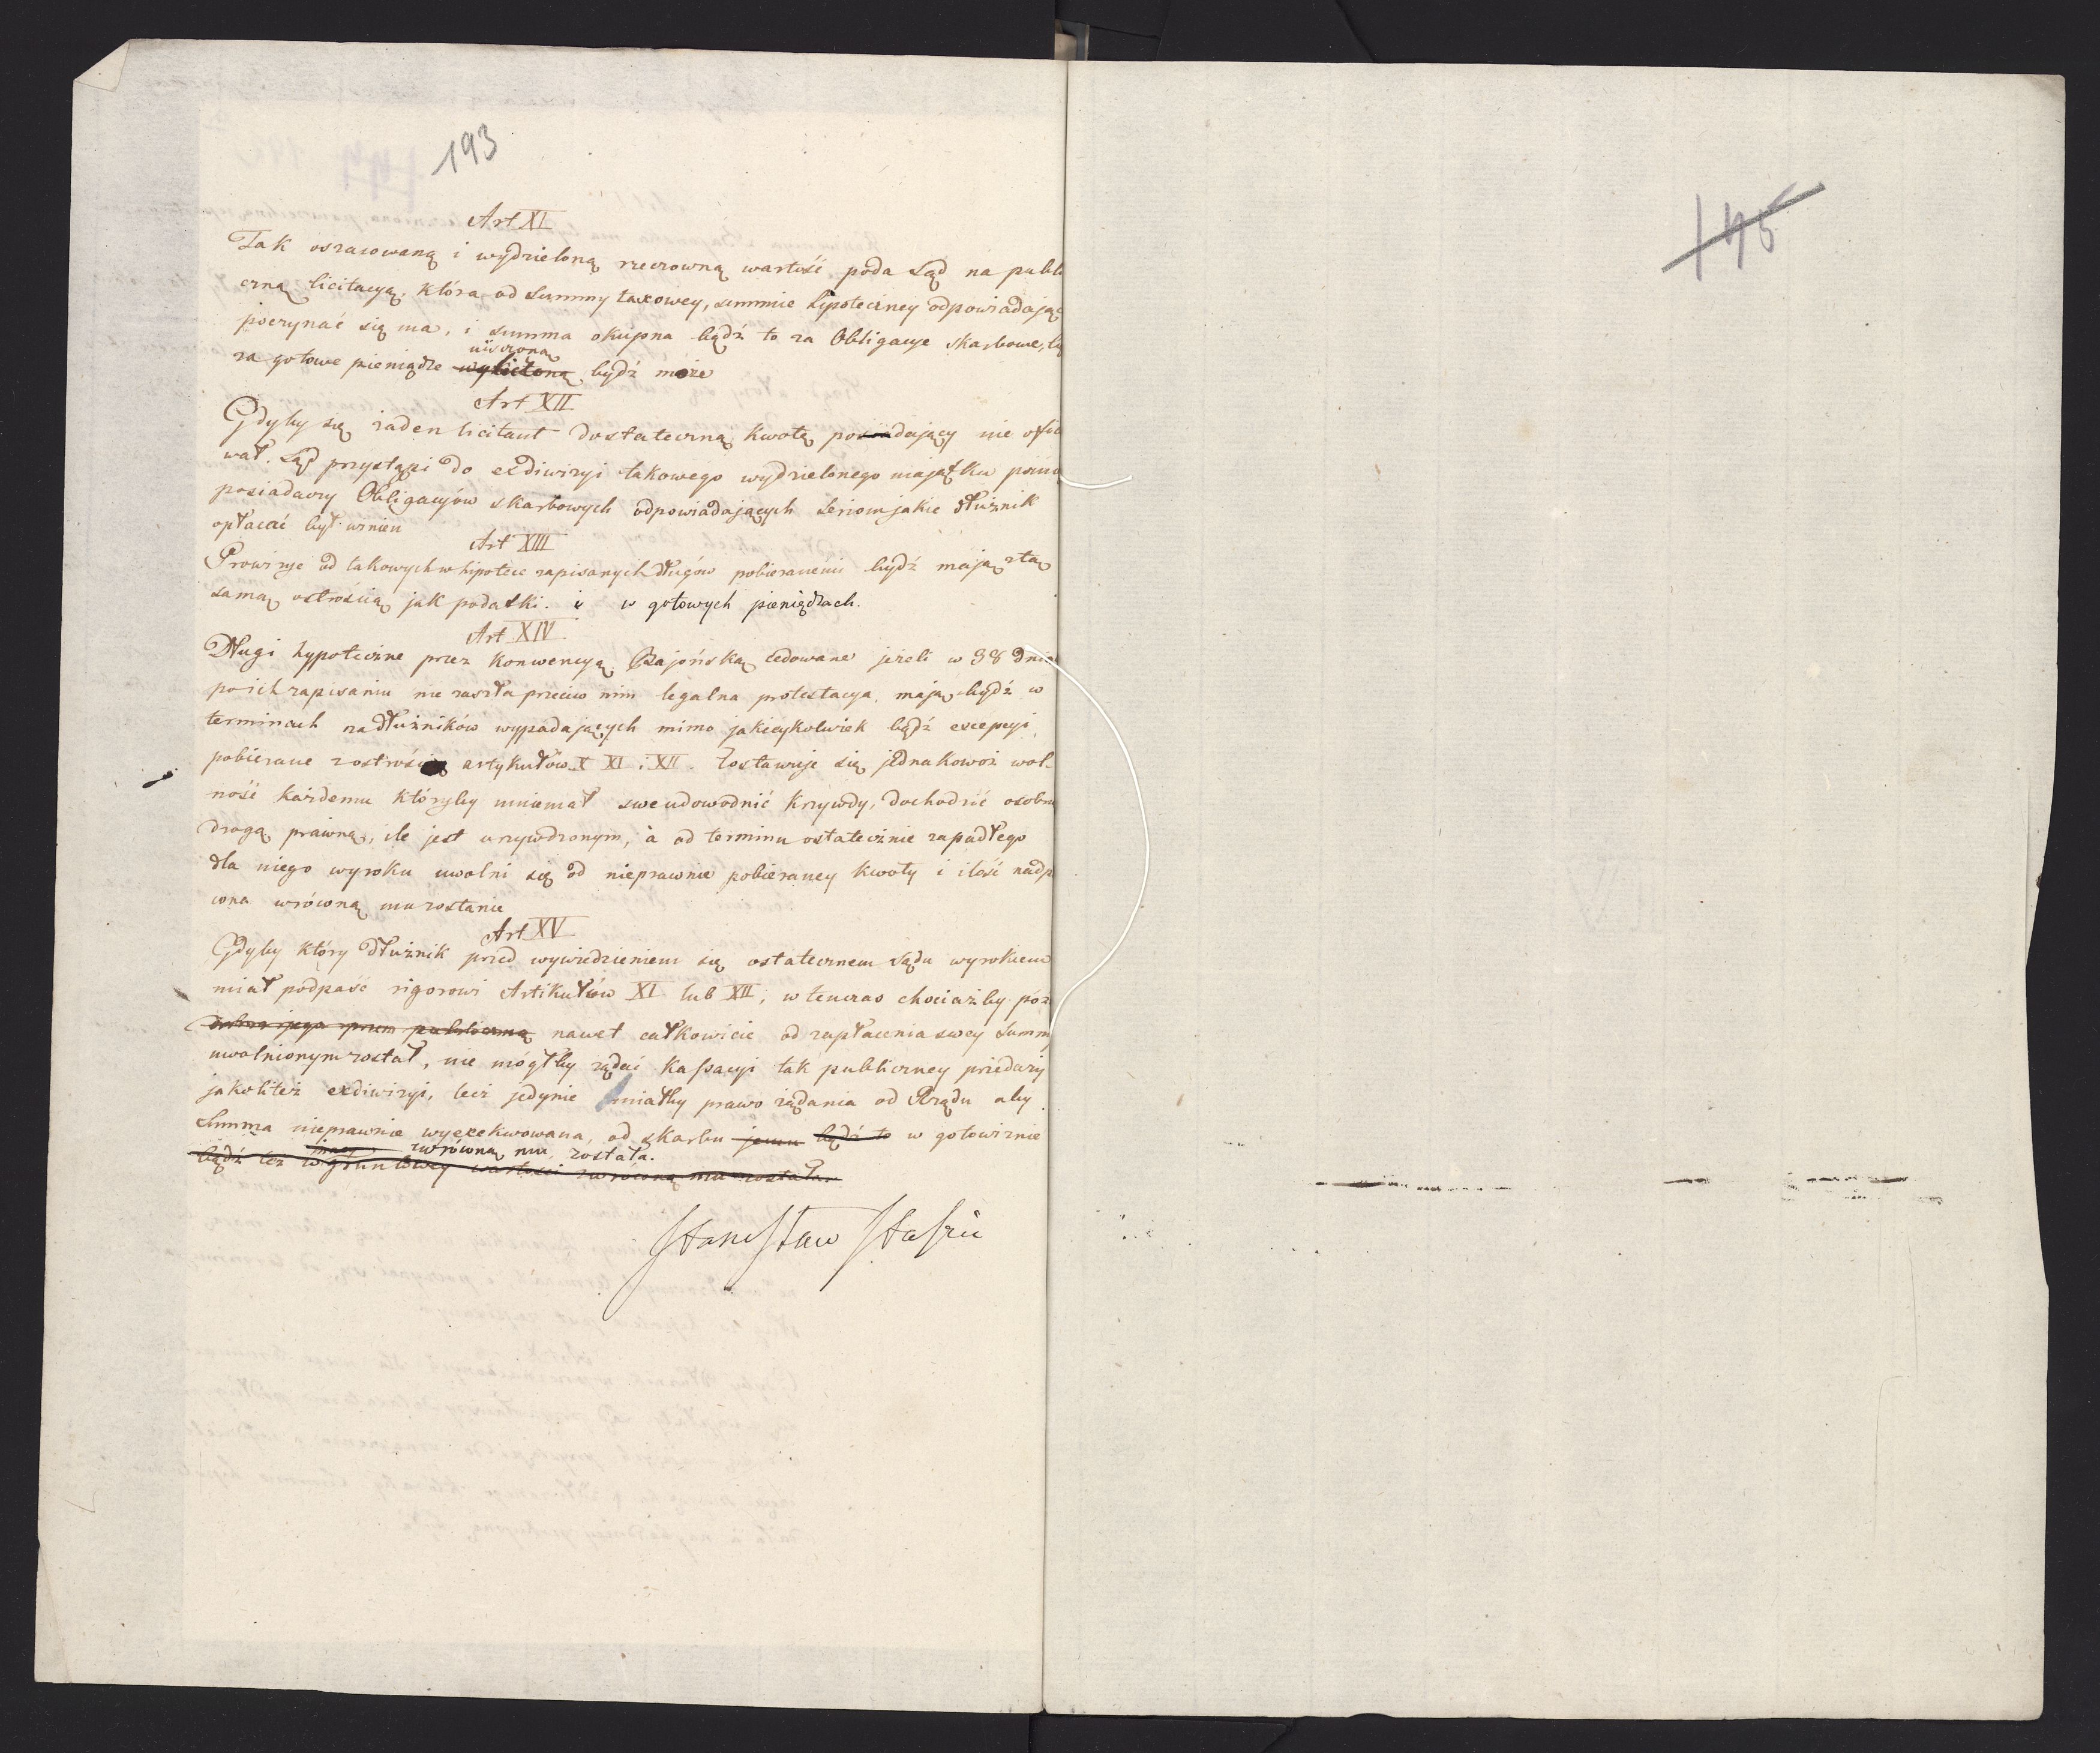 193
Art XI
Tak oszacowaną i wydzieloną rzeczowną wartość poda Sąd na publi
czną licitacyą, która od Summy taxowey, summie hipoteczney odpowiadając
poczynać się ma, i summa okupna bądź to za Obligacye skarbowe, bą
uiszczoną
za gotowe pieniądze wyliczoną bydź może
Art XII
Gdyby się żaden licitant dostateczną kwotę posiadający nie ofia
wał. Sąd przystąpi do exdiwizyi takowego wydzielonego majątku
posiadaczy Obligacyów skarbowych odpowiadających seriom jakie dłużnik
opłacać był winien
Art XIII
Prowizye od takowych w hipotece zapisanych długów pobieranemi bydź mają z tą
samą ostrością jak podatki. i w gotowych pieniądzach.
Art XIV
Długi hypoteczne przez Konwencyą Bajońską cedowane jeżeli w 98 dnia
po ich zapisaniu nie zaszła przeciw nim legalna protestacya, mają bydź w
terminach na dłużników wypadających mimo jakieykolwiek bądź excepcyi,
pobierane z ostrością artykułów X XI i XII. Zostawuje się jednakowoż wol-
ność każdemu któryby mniemał swe udowodnić krzywdy, dochodzić osobną
drogą prawną, ile jest ukrzywdzonym, à od terminu ostatecznie zapadłego
dla niego wyroku uwolni się od nieprawnie pobieraney kwoty i ilość nadp
cona wróconą mu zostanie
Art XV
Gdyby który dłużnik przed wywiedzieniem się ostatecznem Sądu wyrokiem
miał podpaść rigorowi Artikułów XI lub XII, w tenczas chociażby póź
dobra jego przez publiczną nawet całkowicie od zapłacenia swey Summ
uwolnionym został, nie mógłby żądać kassacyi tak publiczney przedaży
jako liteż exdiwizyi, lecz jedynie miałby prawo żądania od Rządu aby
Summa nieprawnie wyexekwowana, od skarbu jemu bądź to w gotowiznie
zwróconą mu została.
bądź też w gruntowey wartości zwróconą mu została.
Stanisław Staszic
145